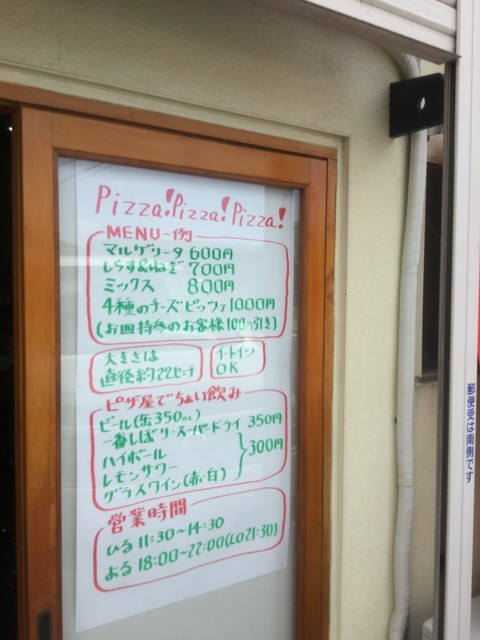 Pizza!Pizza!Pizza!
MENU一例
マルゲリータ 600円
しらす&ねぎ 700円
ミックス 800円
4種のチーズピッツァ 1000円
(お皿持参のお客様100円引き)
大きさは
直径約22センチ
イートイン
OK
ピザ屋でちょい飲み
ビール(缶350mL)
一番しぼり・スーパードライ 350円
ハイボール
レモンサワー
グラスワイン(赤・白)
300円
営業時間
ひる 11:30~14:30
よる 18:00~22:00(LO21:30)
郵便受は南側です